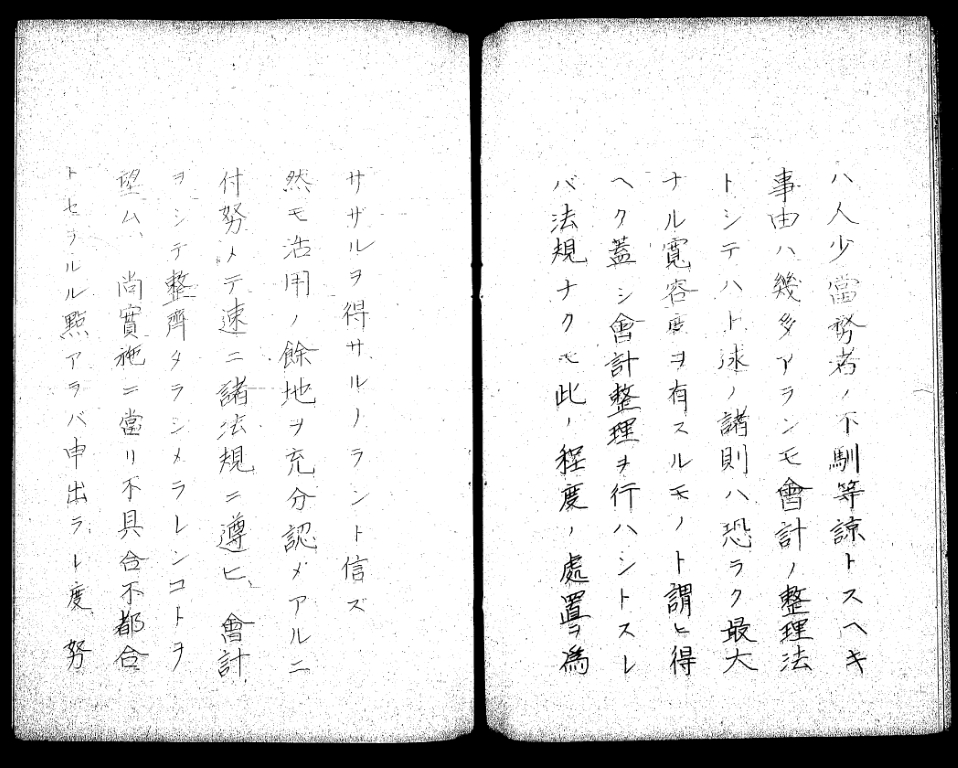 ハ人少當務者ノ不馴等諒トスヘキ
事由ハ幾多アランモ會計ノ整理法
トシテハト述ノ諸則ハ恐ラク最大
ナル寛容度ヲ有スルモノト謂ヒ得
ヘク蓋シ會計整理ヲ行ハントスレ
バ法規ナクモ此ノ程度ノ處置ヲ為
サザルヲ得サルノラント信ズ
然モ活用ノ餘地ヲ充分認メアルニ
付努メテ速ニ諸法規ニ遵ヒ、會計
ヲシテ整齊タラシメラレンコトヲ
望ム、尚實施ニ當リ不具合不都合
トセラルル點アラバ申出ラレ度 努